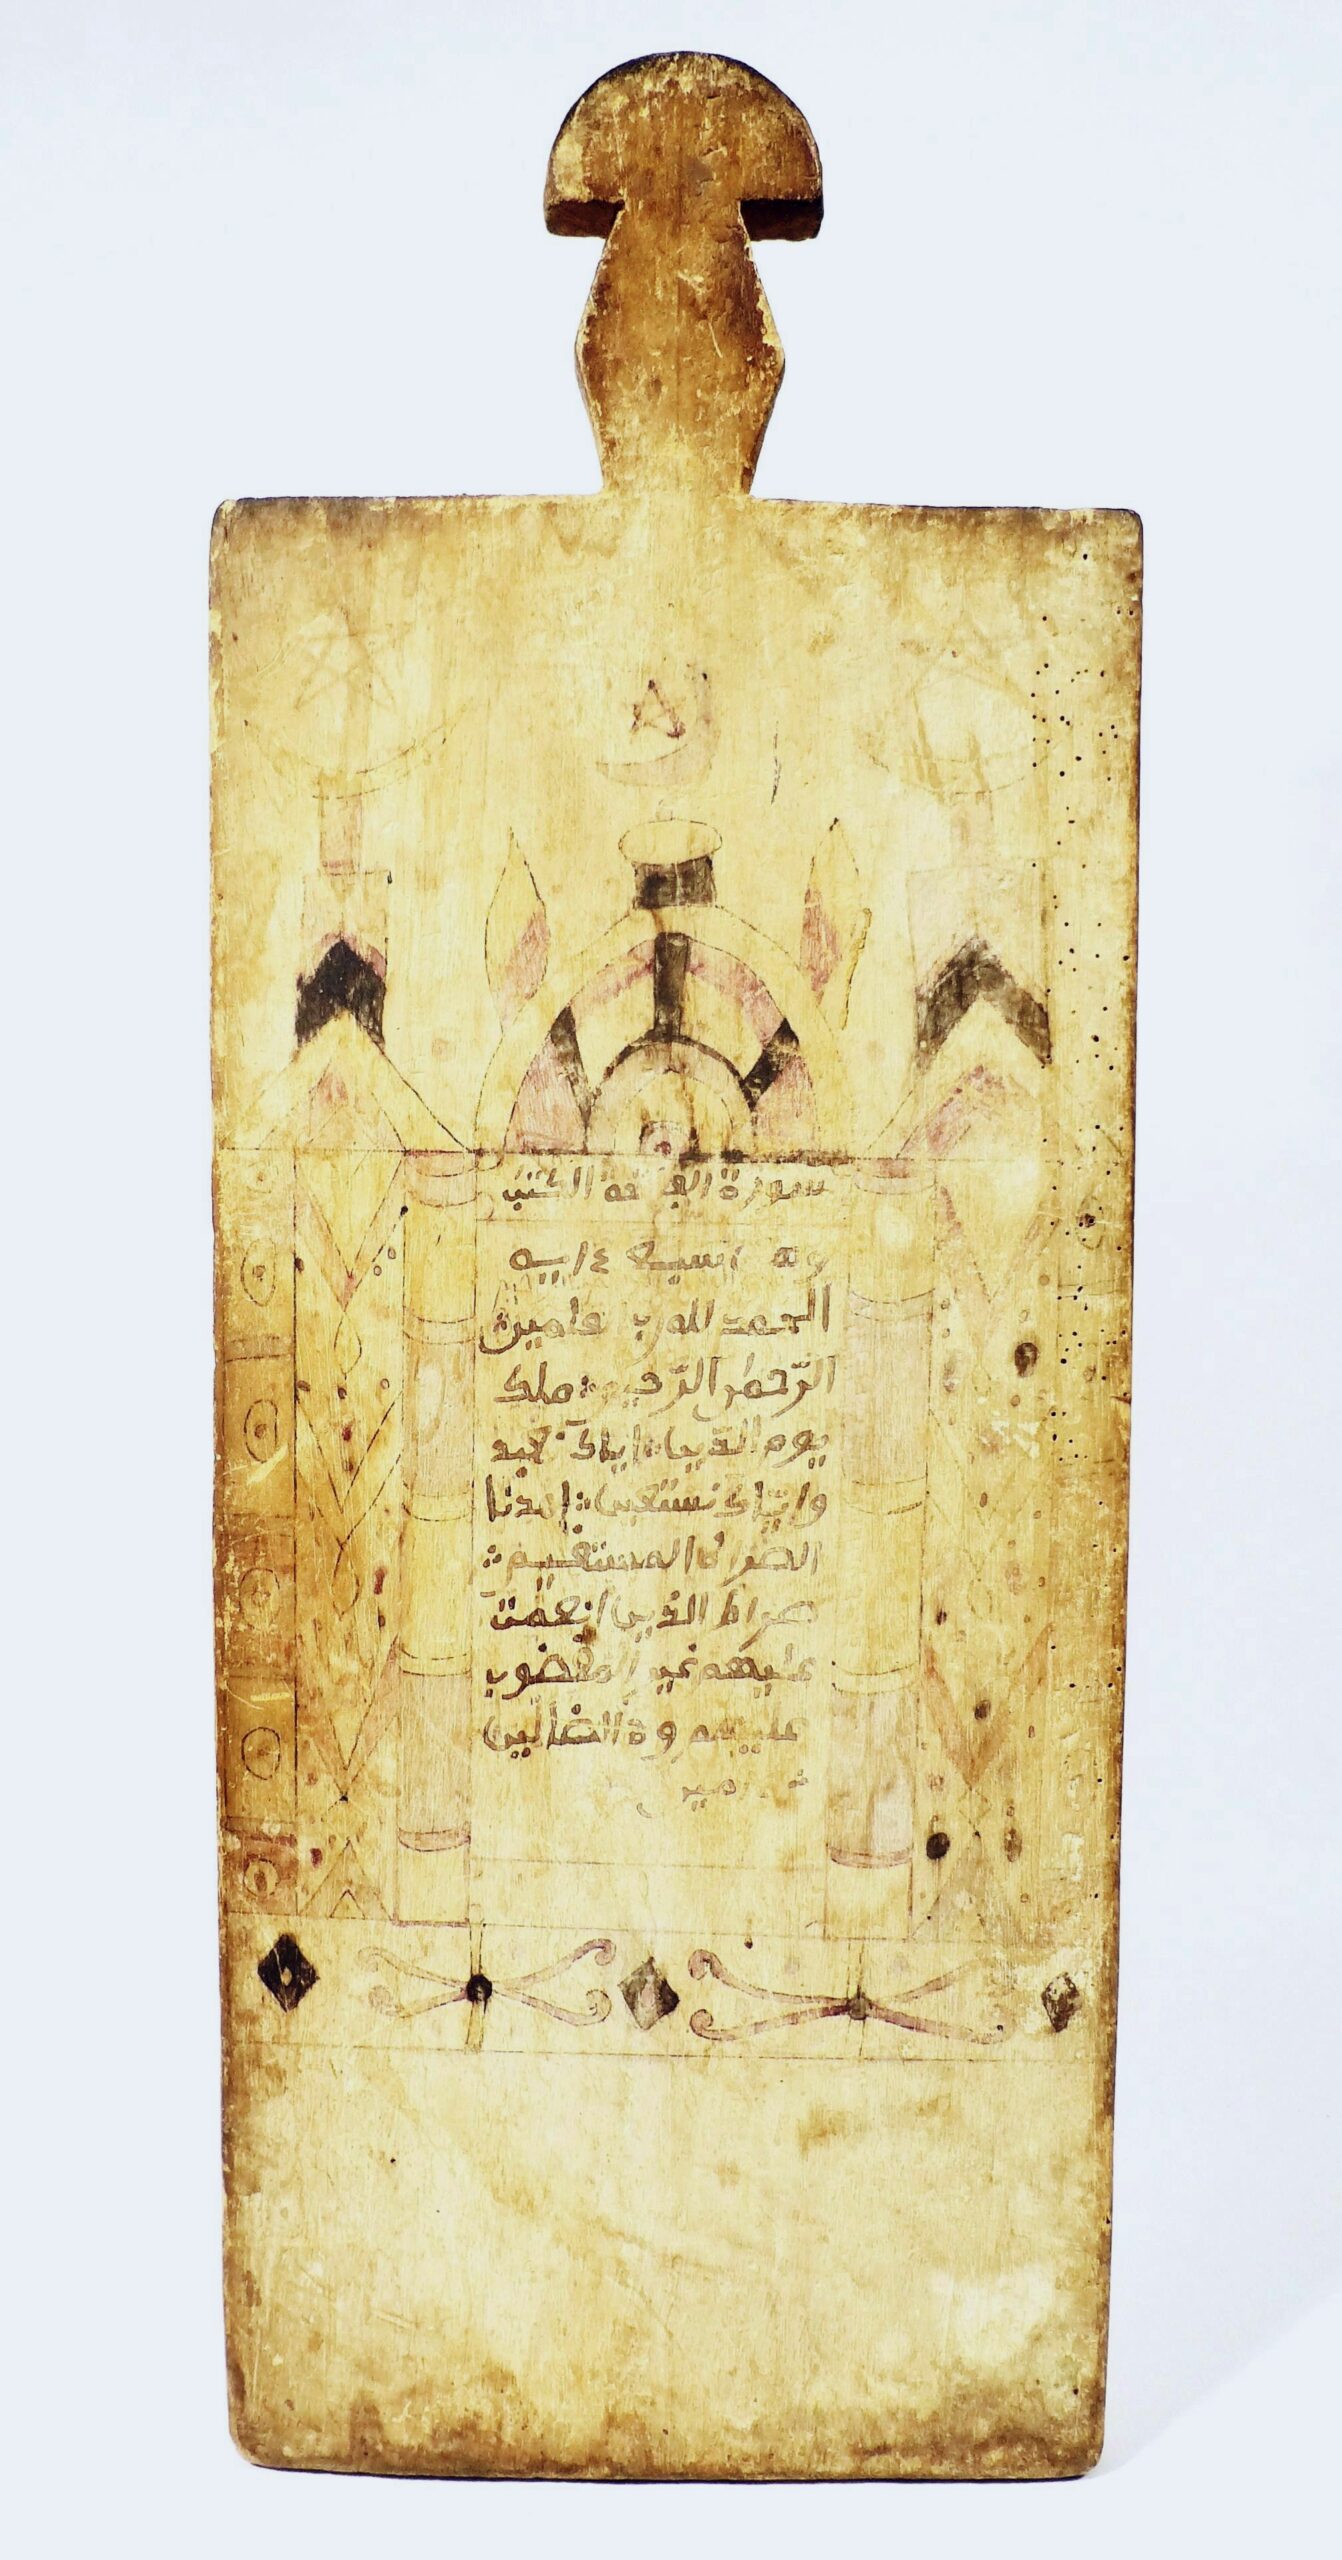 سورة الفاتحة الكتب
وهى السبع ٤ ايه
الحمد لله رب علمين
الرّحمن الرّحيم ملك
يوم الدّين اياك نعبد
وايّاك نستعين اهدنا
الصراط المستقيم
صراط الذين انعمت
عليهم غير المغضوب
عليهم ولا الضالّين
امين